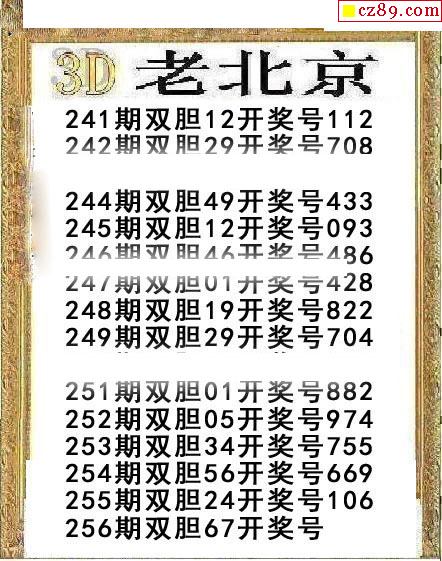 cz89.com
3D 老北京
241期双胆12开奖号112
242期双胆29开奖号708
244期双胆49开奖号433
245期双胆12开奖号093
246期双胆46开奖号486
247期双胆01开奖号428
248期双胆19开奖号822
249期双胆29开奖号704
251期双胆01开奖号882
252期双胆05开奖号974
253期双胆34开奖号755
254期双胆56开奖号669
255期双胆24开奖号106
256期双胆67开奖号